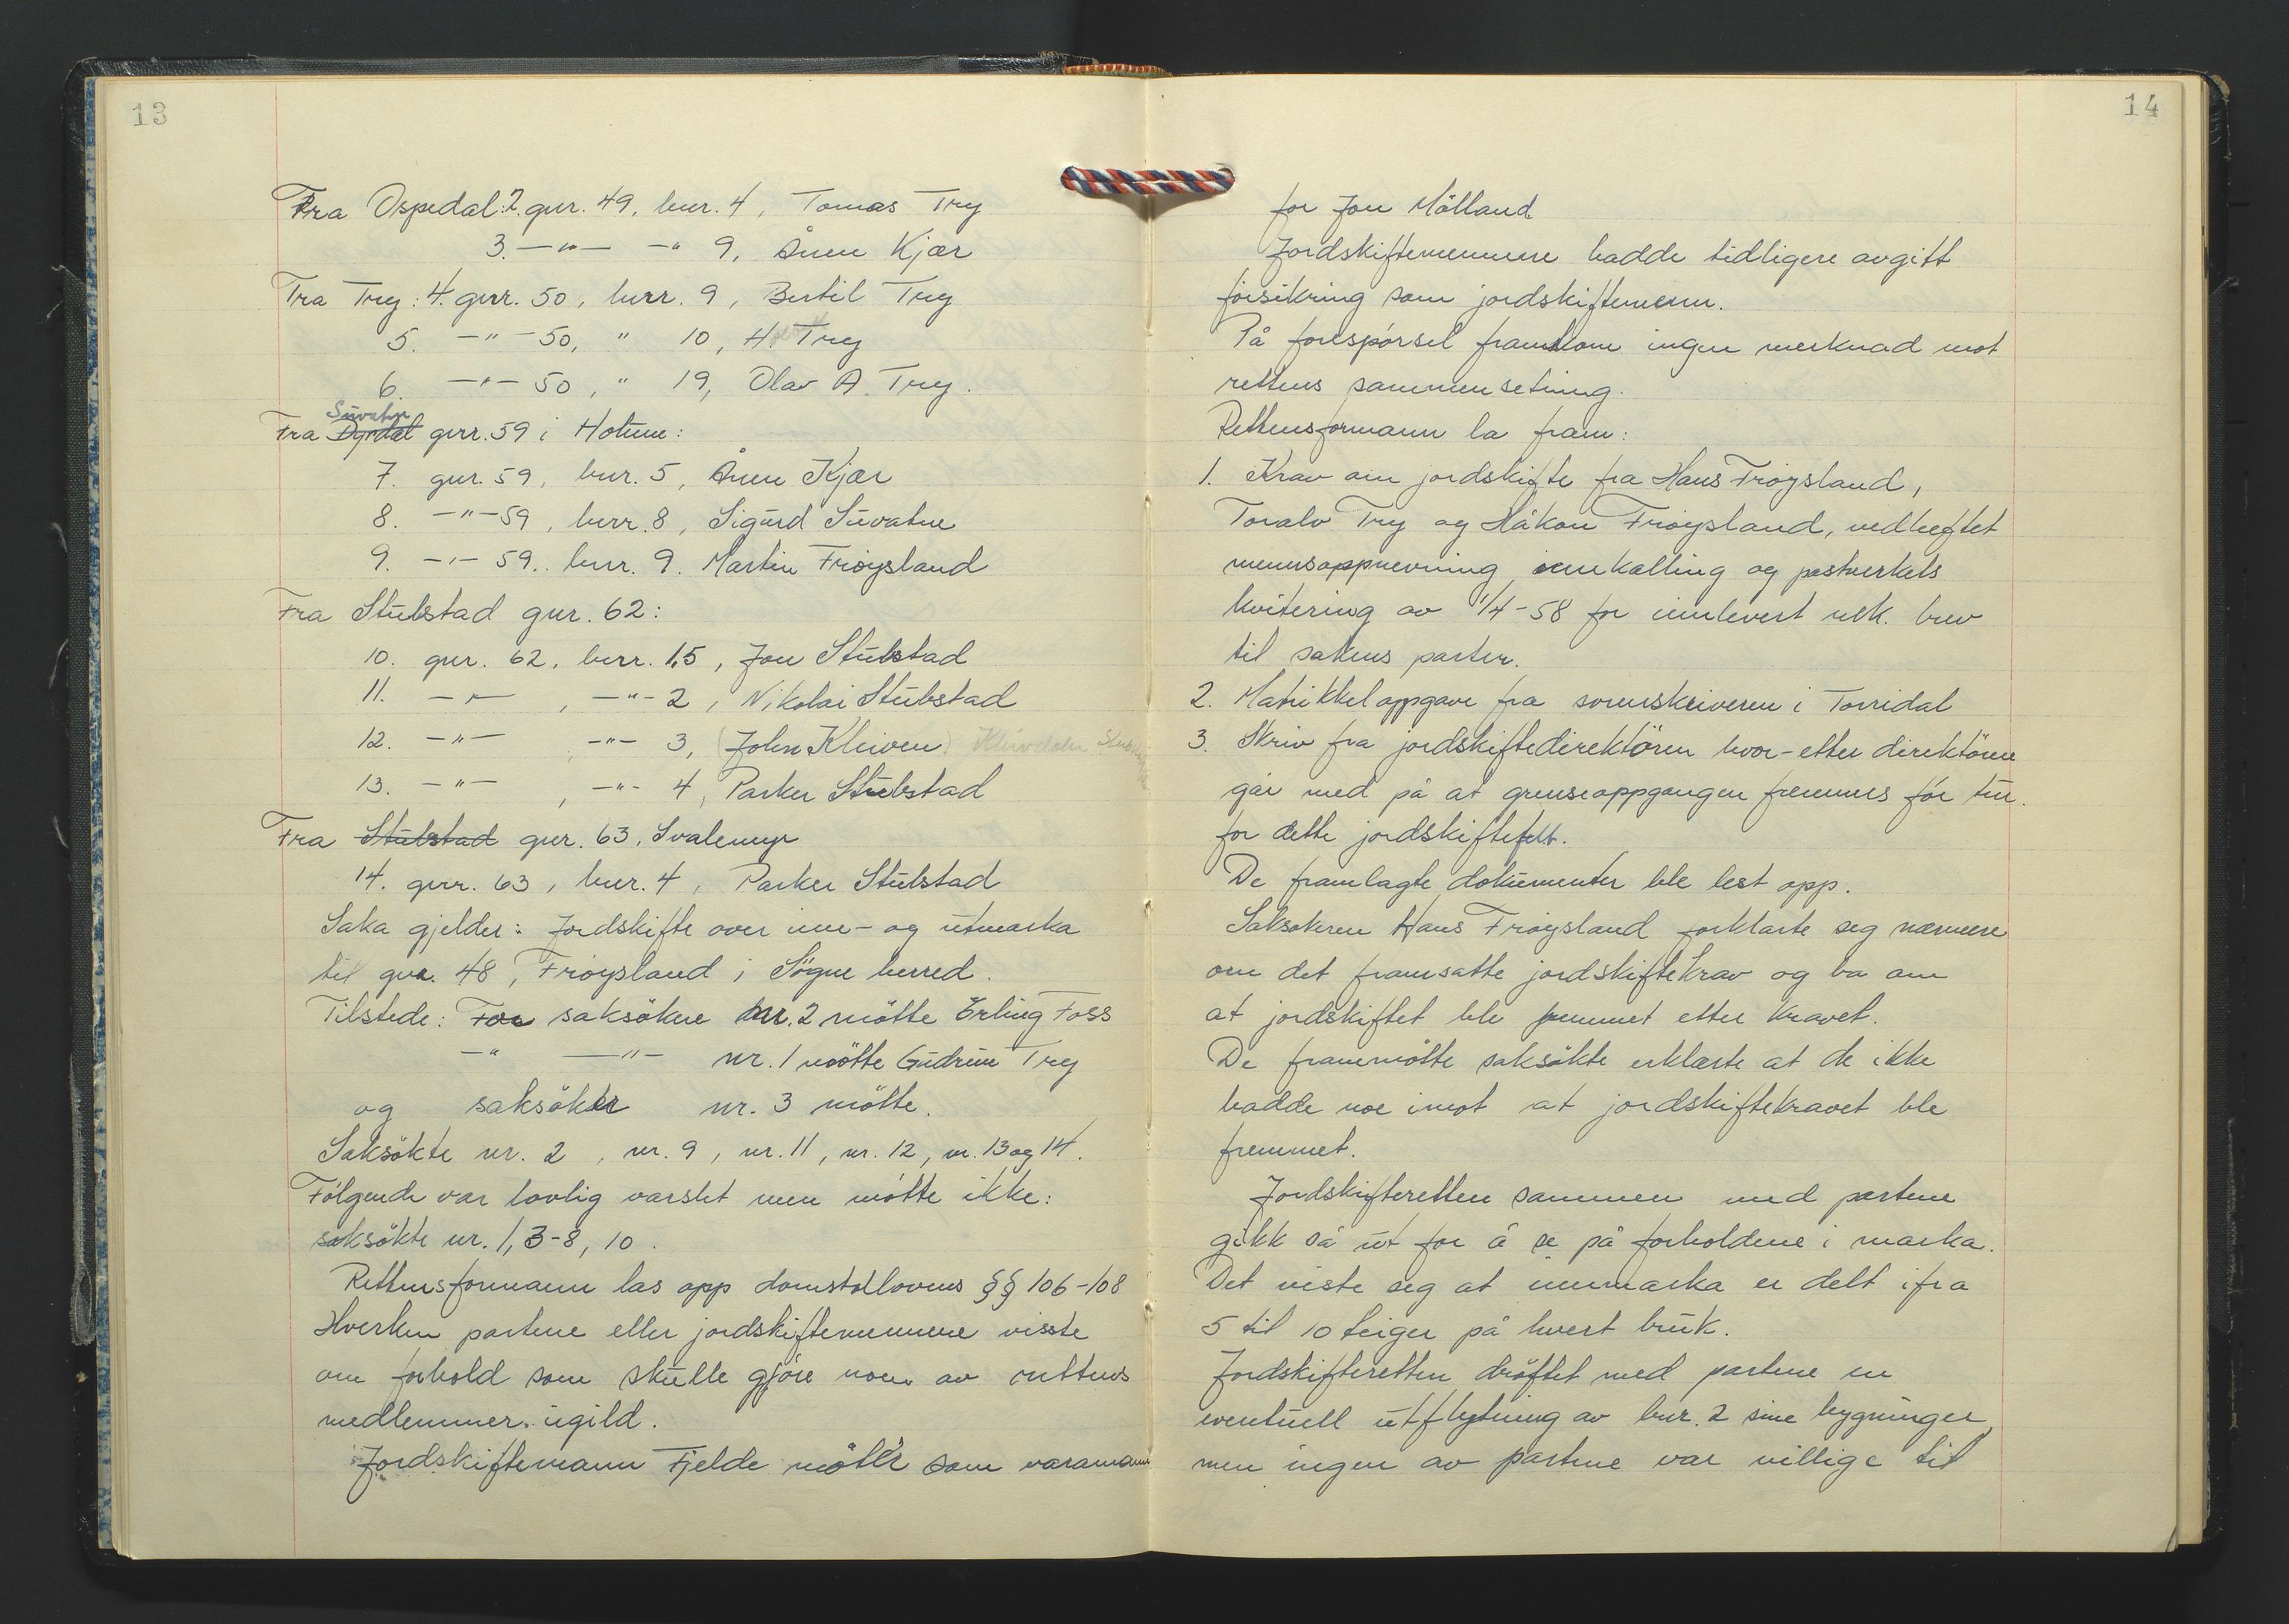 13
Fra Ospedal: 2. gnr. 49, bnr. 4, Tomas Try
3. —"— —" 9, Ånen Kjær
Fra Try: 4. gnr. 50, bnr. 9, Bertil Try
5. —"— 50, " 10, H. Try
6. —"— 50, " 19, Olav A. Try.
Suvatn
Fra Dyrdal gnr. 59 i Holum:
7. gnr. 59, bnr. 5, Ånen Kjær
8. —"— 59, bnr. 8, Sigurd Suvatne
9. —"— 59, bnr. 9. Martin Fröysland
Fra Stubstad gnr. 62:
10. gnr. 62, bnr. 1,5, Jon Stubstad
11. —"— , —"— 2, Nikolai Stubstad
12. —"— , —"— 3, (John Kleiven)
13. —"— , —"— 4, Parker Stubstad
Fra Stubstad gnr. 63, Svalemyr
14. gnr. 63, bnr. 4, Parker Stubstad
Saka gjelder: Jordskifte over inn- og utmarka
til gnr. 48, Fröysland i Sögne herred.
Tilstede: For saksökere nr. 2 mötte Erling Foss
—" —"— nr. 1 mötte Gudrun Try
og saksöker nr. 3 mötte.
Saksökte nr. 2, nr. 9, nr. 11, nr. 12, nr. 13 og 14.
Fölgende var lovlig varslet men mötte ikke:
saksökte nr. 1, 3-8, 10.
Rettensformann las opp domstollovens §§ 106-108
Hverken partene eller jordskiftemennene visste
om forhold som skulle gjöre noen av rettens
medlemmer ugild.
Jordskiftemann Fjelde mötte som varamann
14
for Jon Mölland
Jordskiftemennene hadde tidligere avgitt
forsikring som jordskiftemenn.
På forespörsel framkom ingen merknad mot
rettens sammensetning.
Rettensformann la fram:
1. Krav om jordskifte fra Hans Fröysland,
Toralv Try og Håkon Fröysland, vedheftet
mennsoppnevning innkalling og postverkets
kvitering av 1/4-58 for innlevert rek. brev
til sakens parter.
2. Matrikkeloppgave fra sorenskriveren i Torridal
3. Skriv fra jordskiftedirektören hvor-etter direktören
går med på at grenseoppgangen fremmes för tur.
for dette jordskiftefelt.
De framlagte dokumenter ble lest opp.
Saksökeren Hans Fröysland forklarte seg nærmere
om det framsatte jordskiftekrav og ba om
at jordskiftet ble fremmet etter kravet.
De frammötte saksökte erklærte at de ikke
hadde noe imot at jordskiftekravet ble
fremmet.
Jordskifteretten sammen med partene
gikk så ut for å se på forholdene i marka.
Det viste seg at innmarka er delt ifra
5 til 10 teiger på hvert bruk.
Jordskifteretten dröftet med partene en
eventuell utflytning av bnr. 2 sine bygninger,
men ingen av partene var villige til